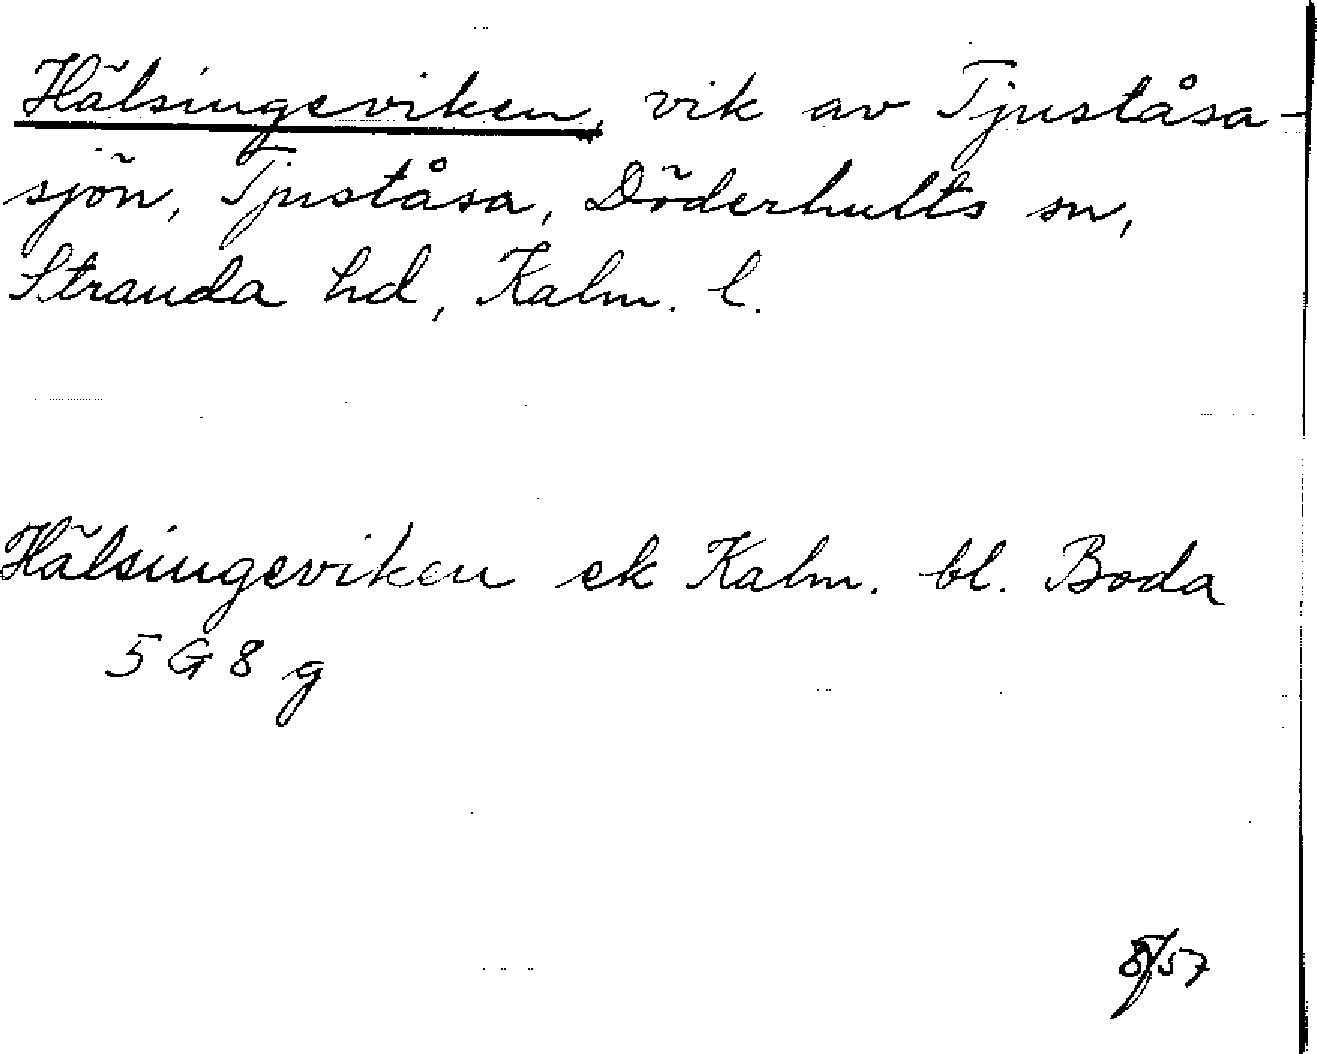 Hälsingeviken, vik av Tjuståsa-
sjön, Tjuståsa, Döderhults sn,
Stranda hd, Kalm. l.
Hälsingeviken ek Kalm. bl. Boda
5 G 8 g